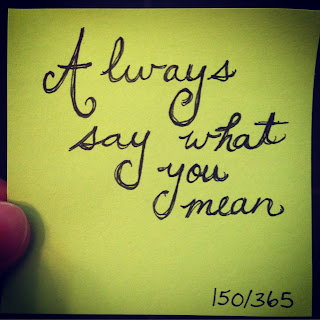 Always
say what
you
mean
150/365